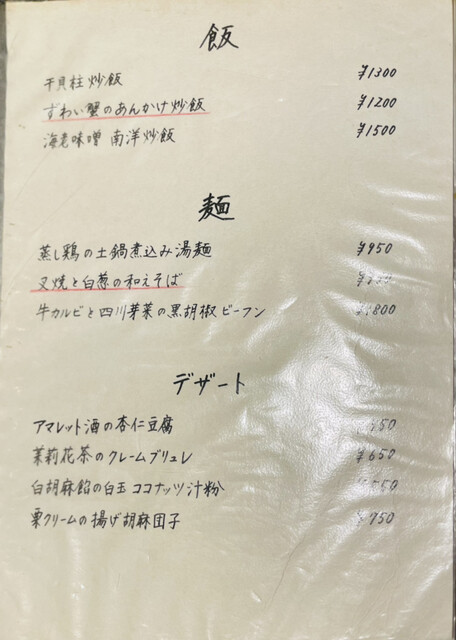 飯
干貝柱炒飯 ¥1300
ずわい蟹のあんかけ炒飯 ¥1200
海老味噌 南洋炒飯 ¥1500
麺
蒸し鶏の土鍋煮込み湯麺 ¥950
叉焼と白葱の和えそば
牛カルビと四川芽菜の黒胡椒ビーフン
デザート
アマレット酒の杏仁豆腐
茉莉花茶のクレームブリュレ ¥650
白胡麻餡の白玉ココナッツ汁粉
栗クリームの揚げ胡麻団子 ¥750